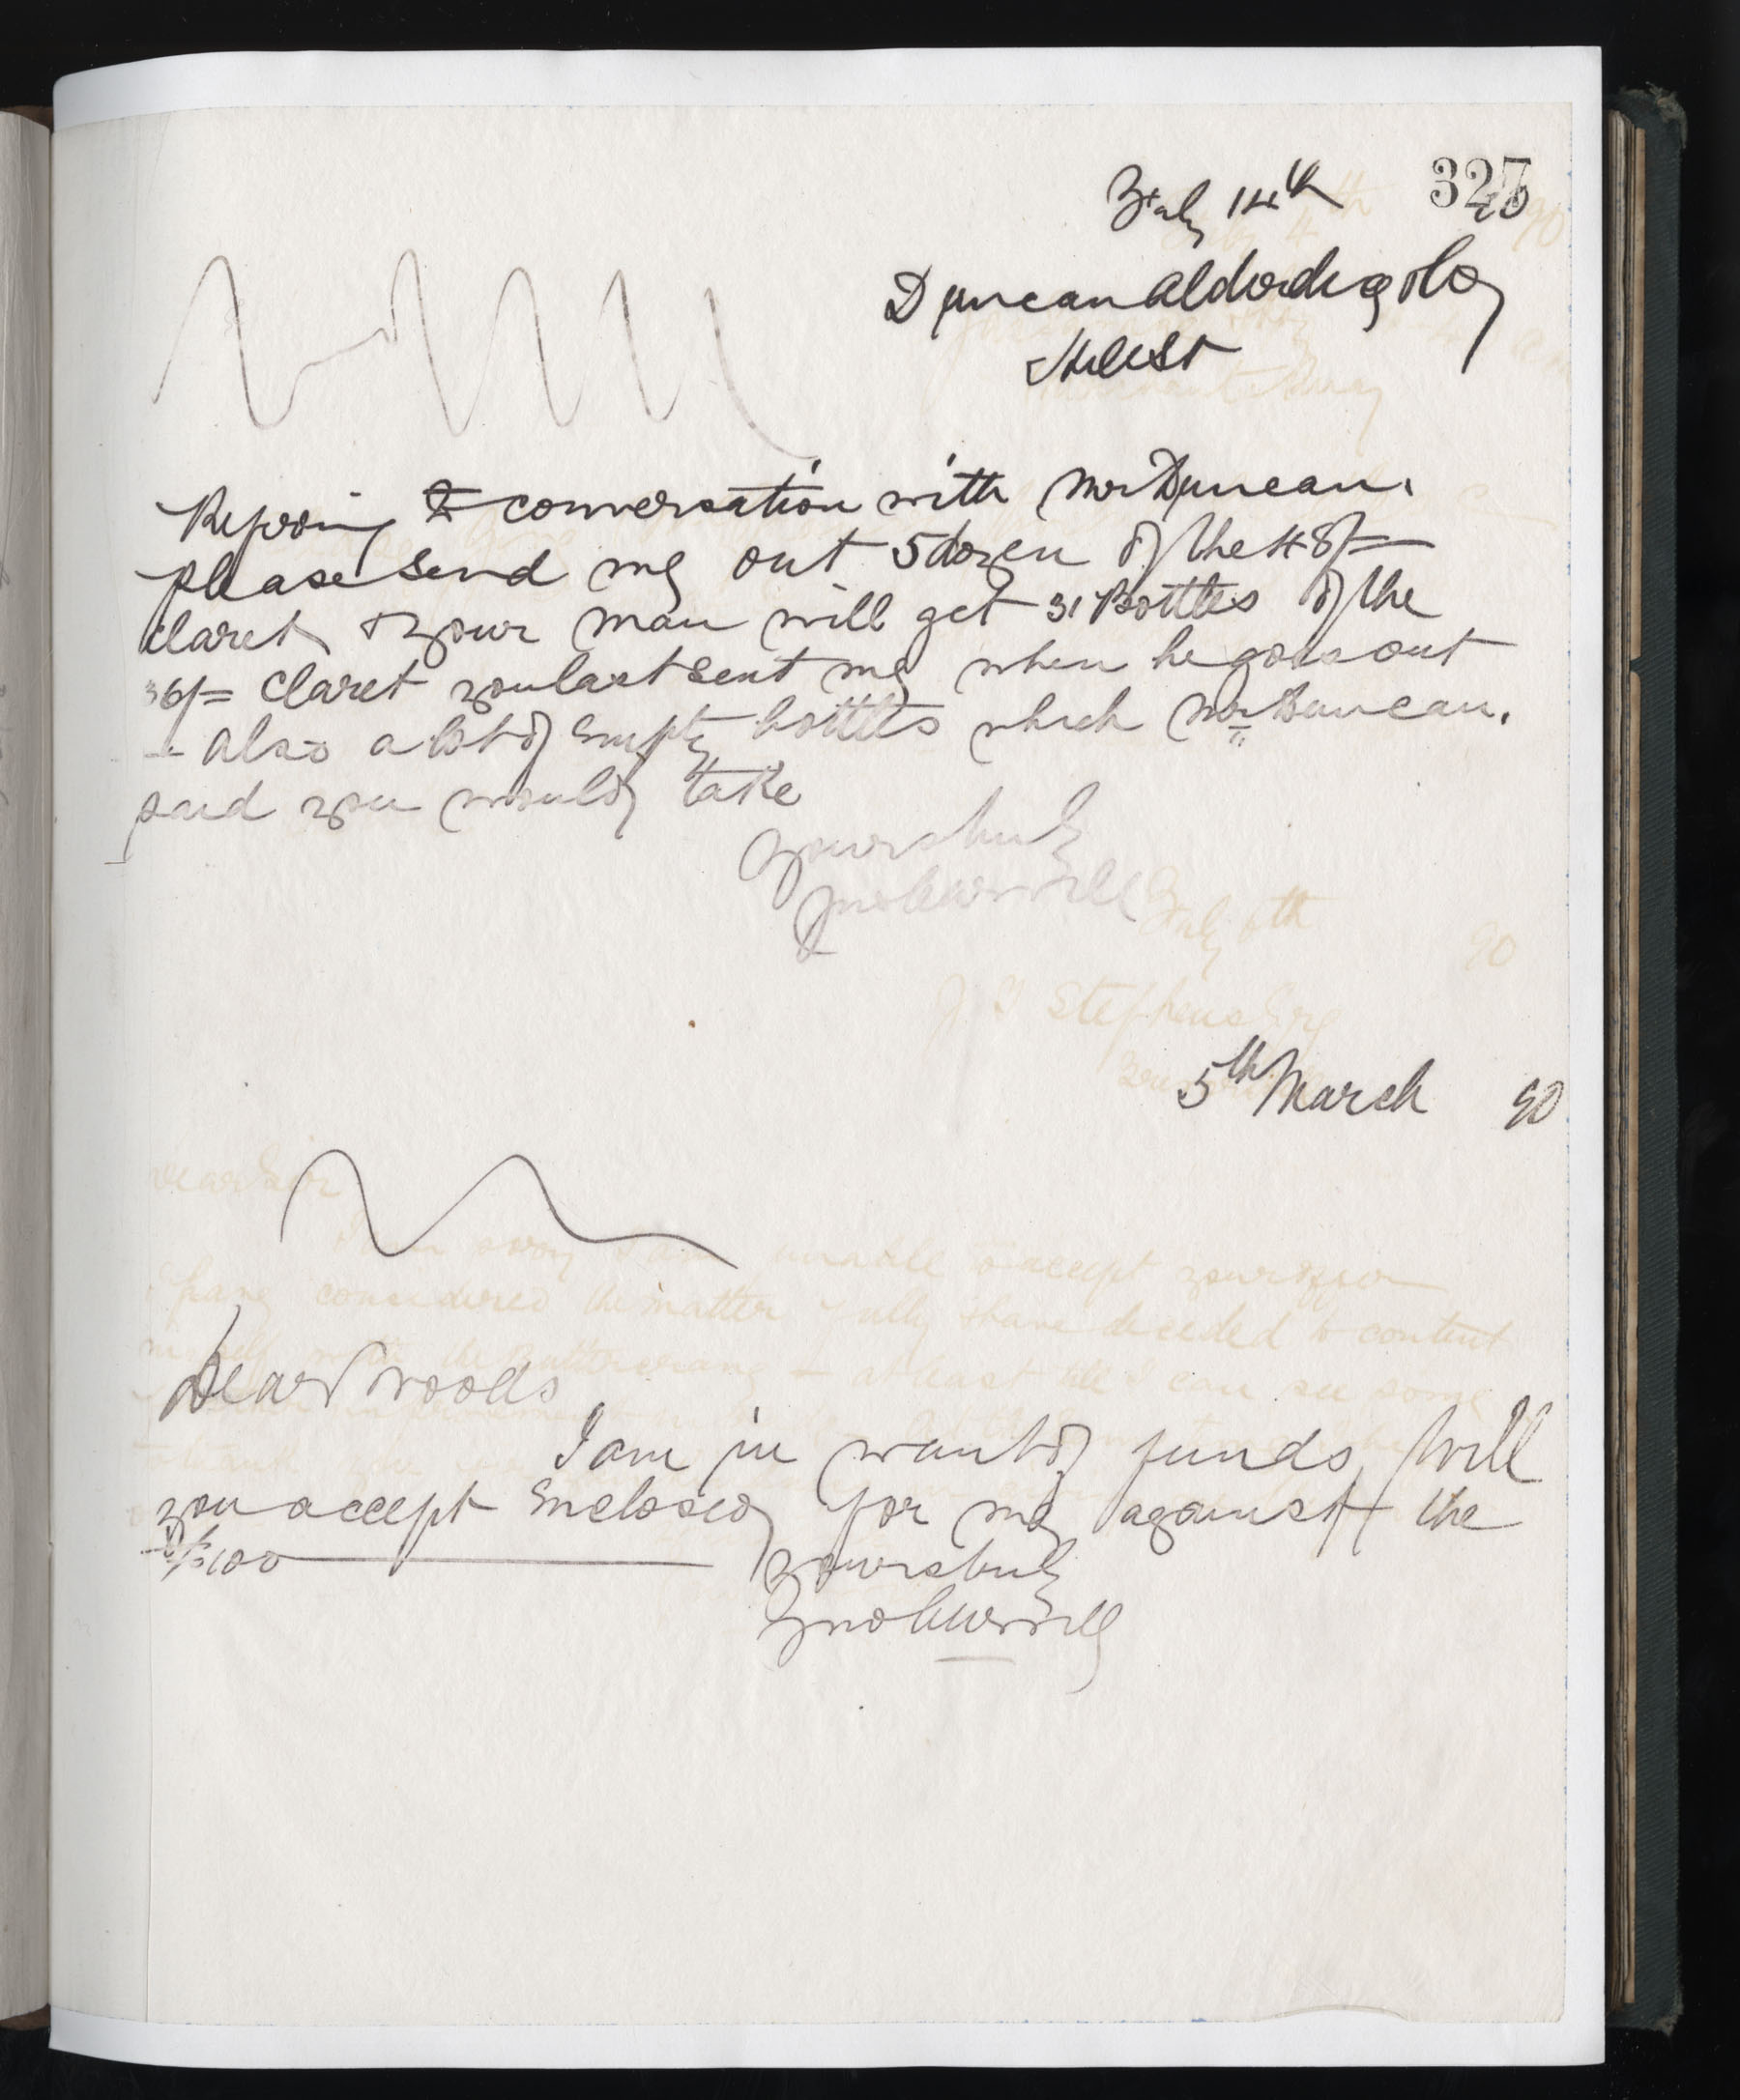 327
Feby 14th 90
Duncan Alderdice & Co
Hill St
Refering to conversation with Mr Duncan.
please send me out 5 dozen of the 48/=
claret & your man will get 31 Bottles of the
36/= claret you last sent me when he goes out
- also a lot of empty bottles which Mr Duncan.
said you would take
Yours truly
5th March 90
Dear Woods
I am in want of funds, Will
you accept enclosed for me against the
£100
Yours truly